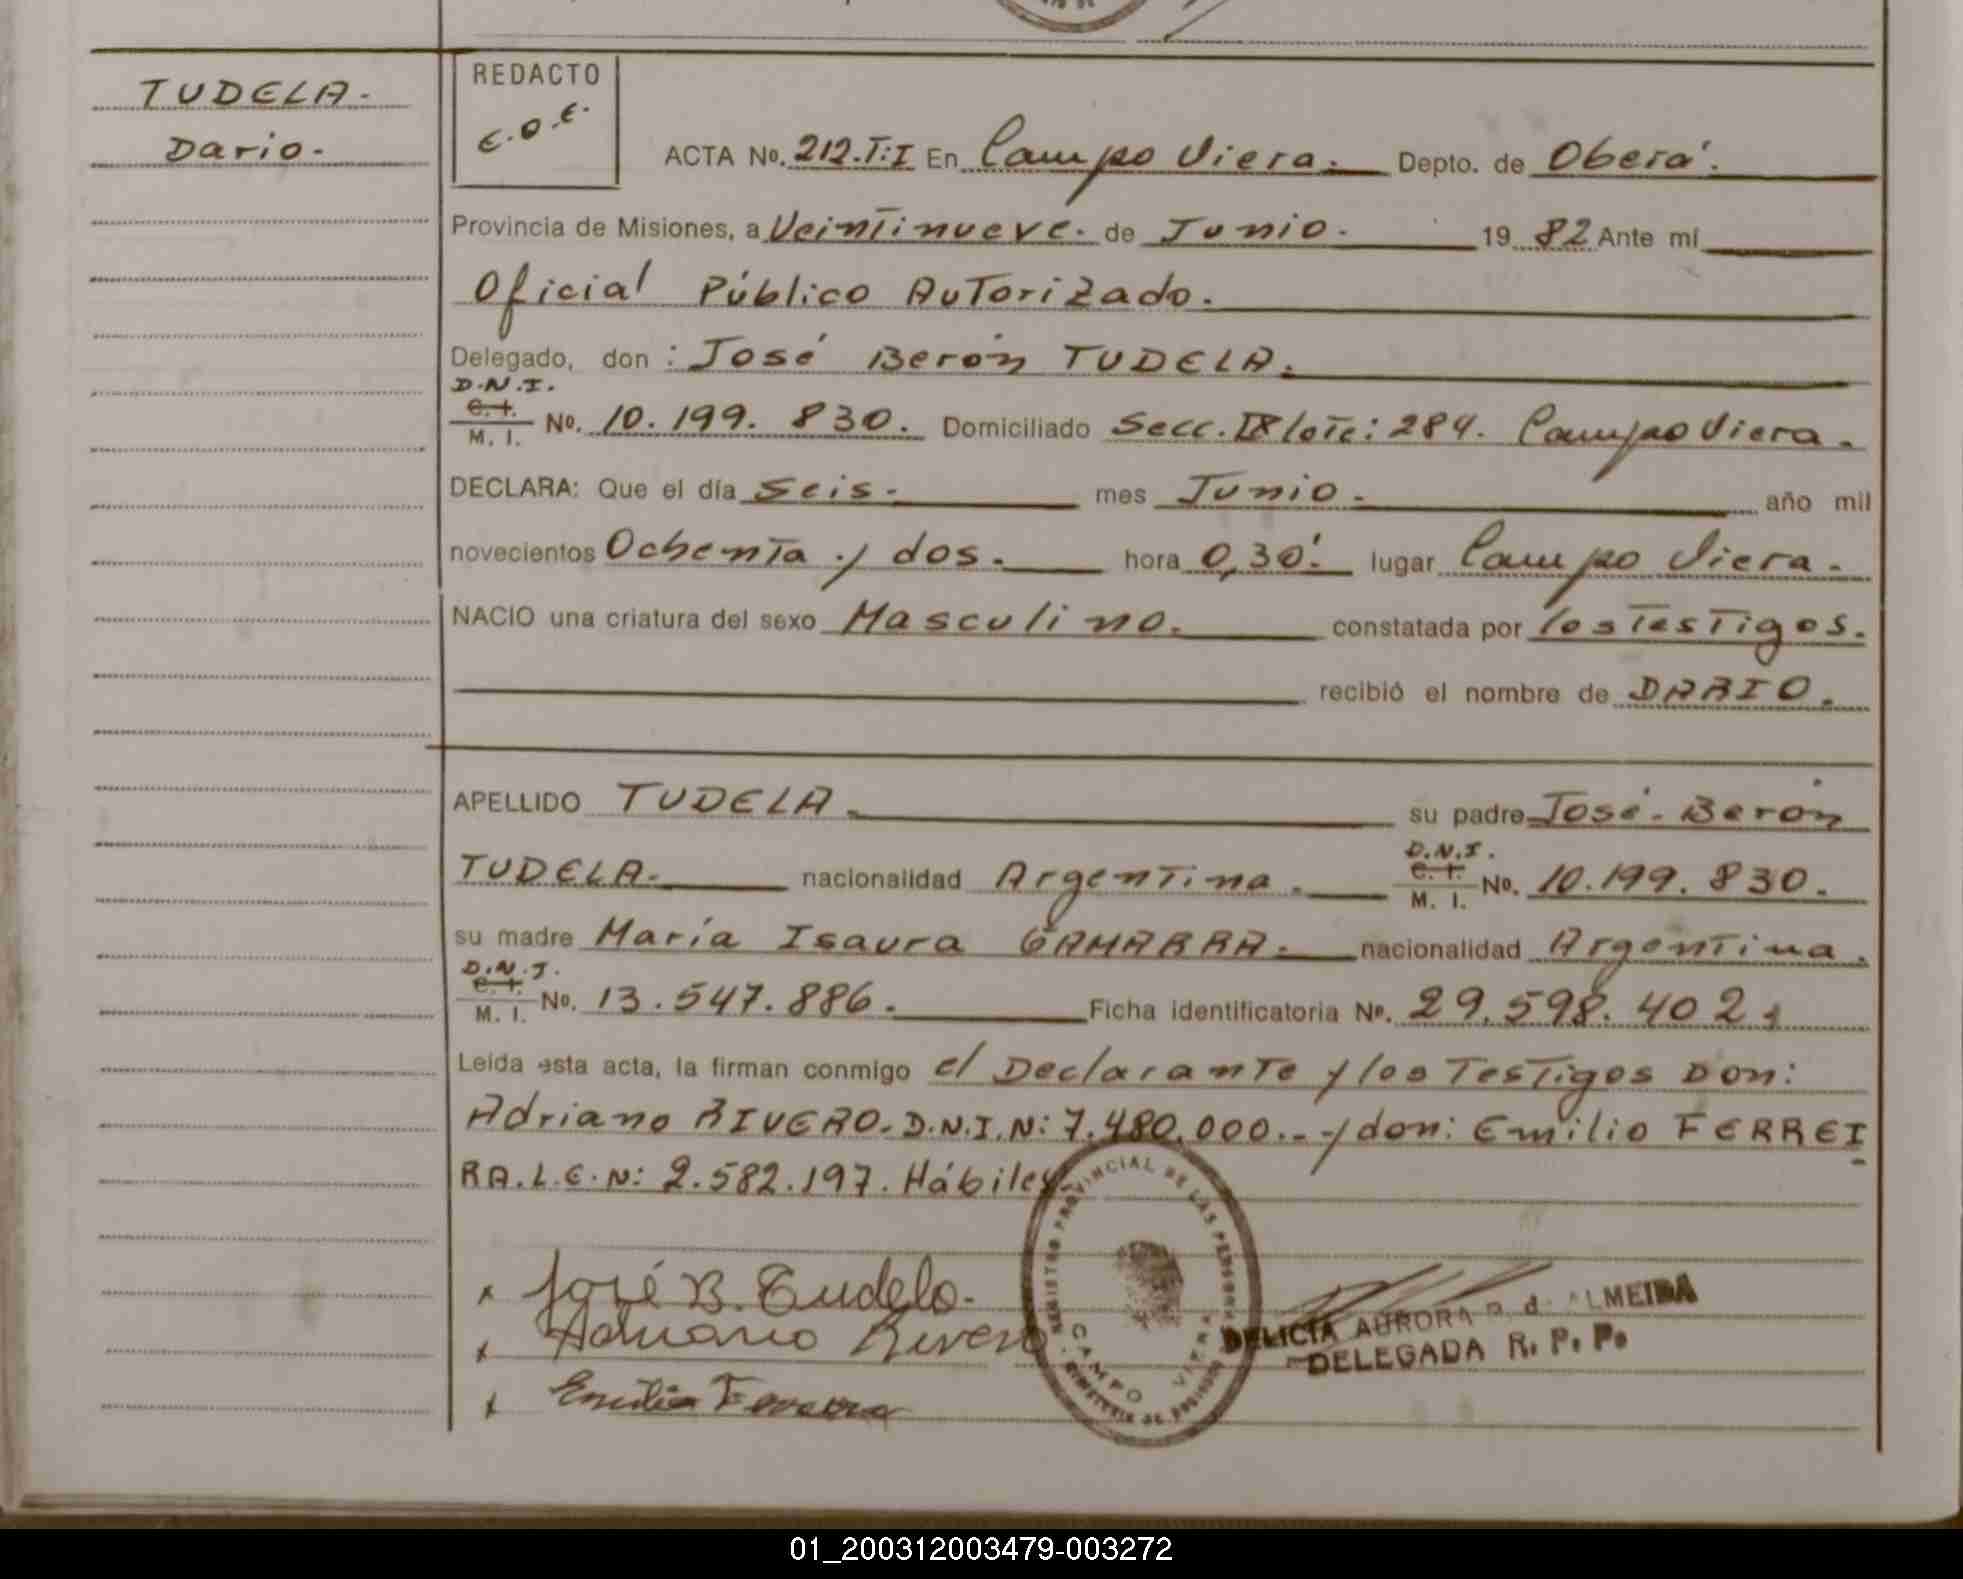 TUDELA.
Dario.
REDACTO
E.O.E.
ACTA No. 212.T:I En Campo Viera. Depto. de Oberá.
Provincia de Misiones, a Veintinueve. de Junio. 1982 Ante mí
Oficial Público Autorizado.
Delegado, don : José Berón TUDELA.
D.N.I.
C.I.
M. I. No. 10.199.830. Domiciliado Secc. IX lote: 284. Campo Viera.
DECLARA: Que el día Seis. mes Junio. año mil
novecientos Ochenta y dos. hora 0,30'. lugar Campo Viera.
NACIO una criatura del sexo Masculino. constatada por los Testigos.
recibió el nombre de DARIO.
APELLIDO TUDELA. su padre José. Berón
D.N.I.
C.I.
TUDELA. nacionalidad Argentina. M. I. No. 10.199.830.
su madre María Isaura GAMARRA. nacionalidad Argentina.
D.N.I.
C.I.
M. I. No. 13.547.886. Ficha identificatoria No. 29.598.402.
Leída esta acta, la firman conmigo el Declarante y los Testigos Don:
Adriano RIVERO. D.N.I.N: 7.480.000.- y don: Emilio FERREI
RA. L.E.N: 2.582.197. Hábiles.
REGISTRO PROVINCIAL DE LAS PERSONAS
CAMPO VIERA
MINISTERIO DE GOBIERNO
x José B. Tudela.
x Adriano Rivero
x Emilio Ferreira
DELICIA AURORA d ALMEIDA
DELEGADA R. P. P.
01_200312003479-003272